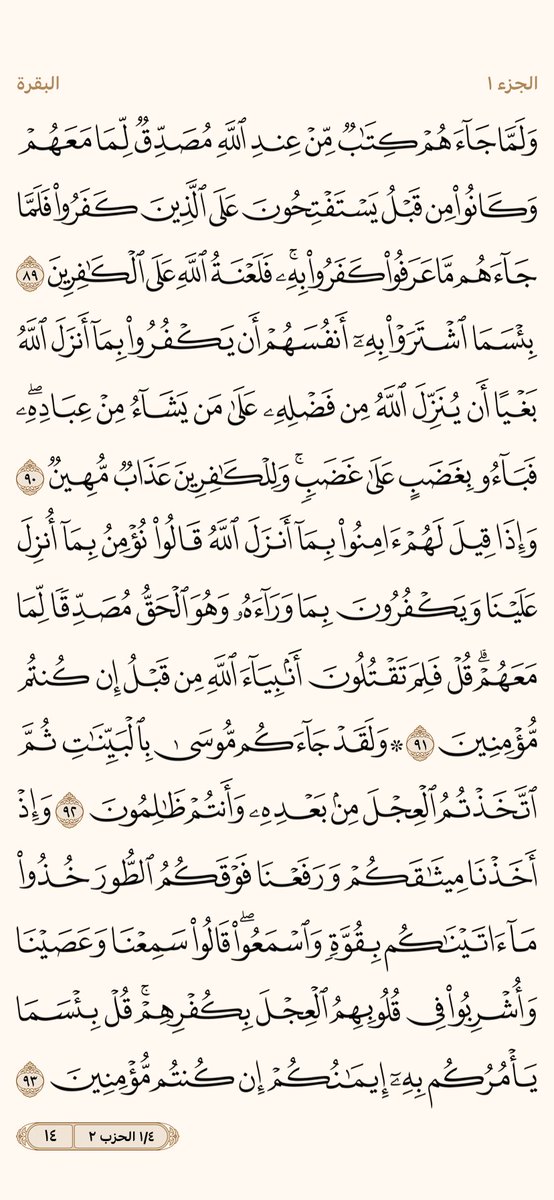 الجزء ١
البقرة
وَلَمَّا جَآءَهُمۡ كِتَٰبٞ مِّنۡ عِندِ ٱللَّهِ مُصَدِّقٞ لِّمَا مَعَهُمۡ
وَكَانُواْ مِن قَبۡلُ يَسۡتَفۡتِحُونَ عَلَى ٱلَّذِينَ كَفَرُواْ فَلَمَّا
جَآءَهُم مَّا عَرَفُواْ كَفَرُواْ بِهِۦۚ فَلَعۡنَةُ ٱللَّهِ عَلَى ٱلۡكَٰفِرِينَ ٨٩
بِئۡسَمَا ٱشۡتَرَوۡاْ بِهِۦٓ أَنفُسَهُمۡ أَن يَكۡفُرُواْ بِمَآ أَنزَلَ ٱللَّهُ
بَغۡيًا أَن يُنَزِّلَ ٱللَّهُ مِن فَضۡلِهِۦ عَلَىٰ مَن يَشَآءُ مِنۡ عِبَادِهِۦۖ
فَبَآءُو بِغَضَبٍ عَلَىٰ غَضَبٖۚ وَلِلۡكَٰفِرِينَ عَذَابٞ مُّهِينٞ ٩٠
وَإِذَا قِيلَ لَهُمۡ ءَامِنُواْ بِمَآ أَنزَلَ ٱللَّهُ قَالُواْ نُؤۡمِنُ بِمَآ أُنزِلَ
عَلَيۡنَا وَيَكۡفُرُونَ بِمَا وَرَآءَهُۥ وَهُوَ ٱلۡحَقُّ مُصَدِّقٗا لِّمَا
مَعَهُمۡۗ قُلۡ فَلِمَ تَقۡتُلُونَ أَنۢبِيَآءَ ٱللَّهِ مِن قَبۡلُ إِن كُنتُم
مُّؤۡمِنِينَ ٩١ ۞ وَلَقَدۡ جَآءَكُم مُّوسَىٰ بِٱلۡبَيِّنَٰتِ ثُمَّ
ٱتَّخَذۡتُمُ ٱلۡعِجۡلَ مِنۢ بَعۡدِهِۦ وَأَنتُمۡ ظَٰلِمُونَ ٩٢ وَإِذۡ
أَخَذۡنَا مِيثَٰقَكُمۡ وَرَفَعۡنَا فَوۡقَكُمُ ٱلطُّورَ خُذُواْ
مَآ ءَاتَيۡنَٰكُم بِقُوَّةٖ وَٱسۡمَعُواْۖ قَالُواْ سَمِعۡنَا وَعَصَيۡنَا
وَأُشۡرِبُواْ فِي قُلُوبِهِمُ ٱلۡعِجۡلَ بِكُفۡرِهِمۡۚ قُلۡ بِئۡسَمَا
يَأۡمُرُكُم بِهِۦٓ إِيمَٰنُكُمۡ إِن كُنتُم مُّؤۡمِنِينَ ٩٣
١/٤ الحزب ٢
١٤